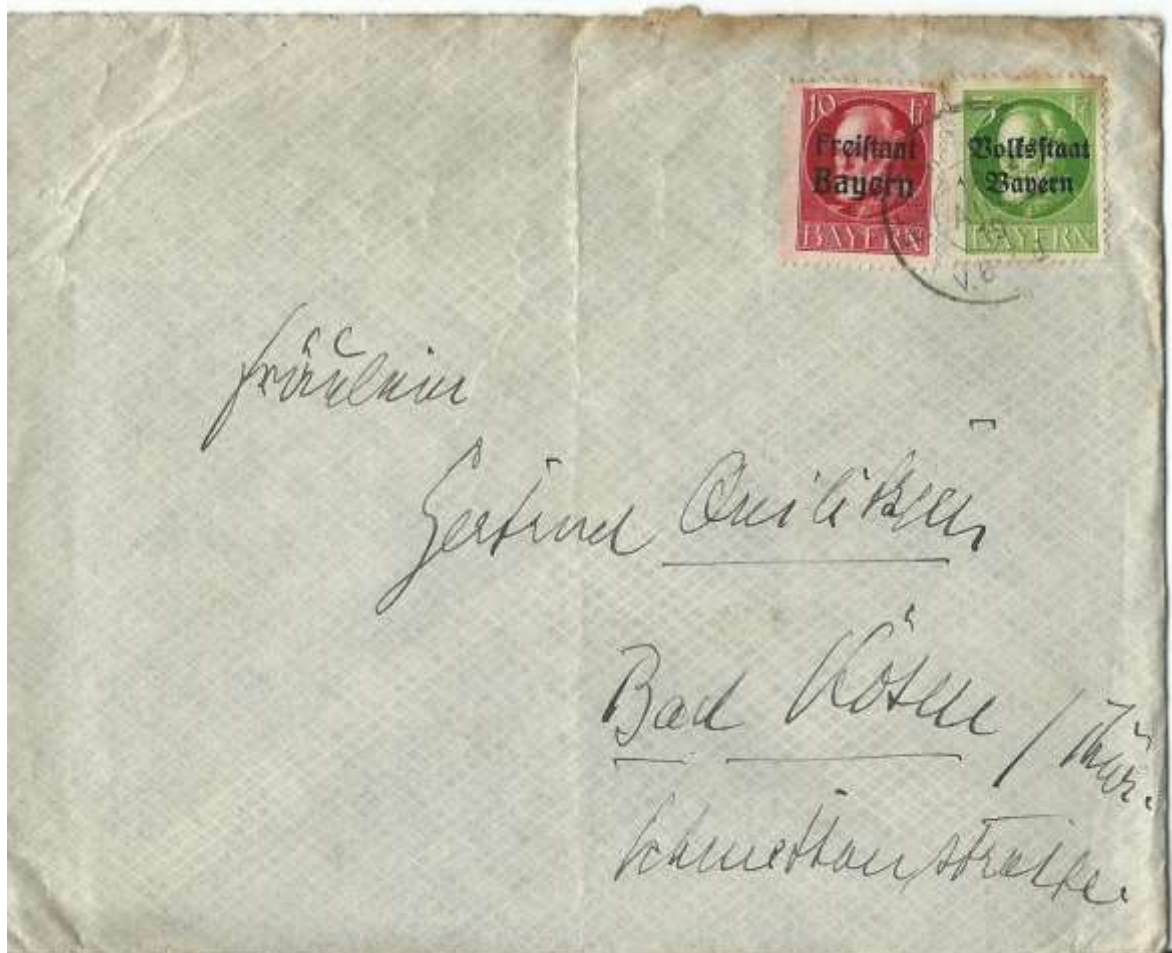 10 Pf
Freistaat
Bayern
BAYERN
5 Pf
Volksstaat
Bayern
BAYERN
19
Fräulein
Gertrud
Bad Kösen / Thür.
Schmettaustraße